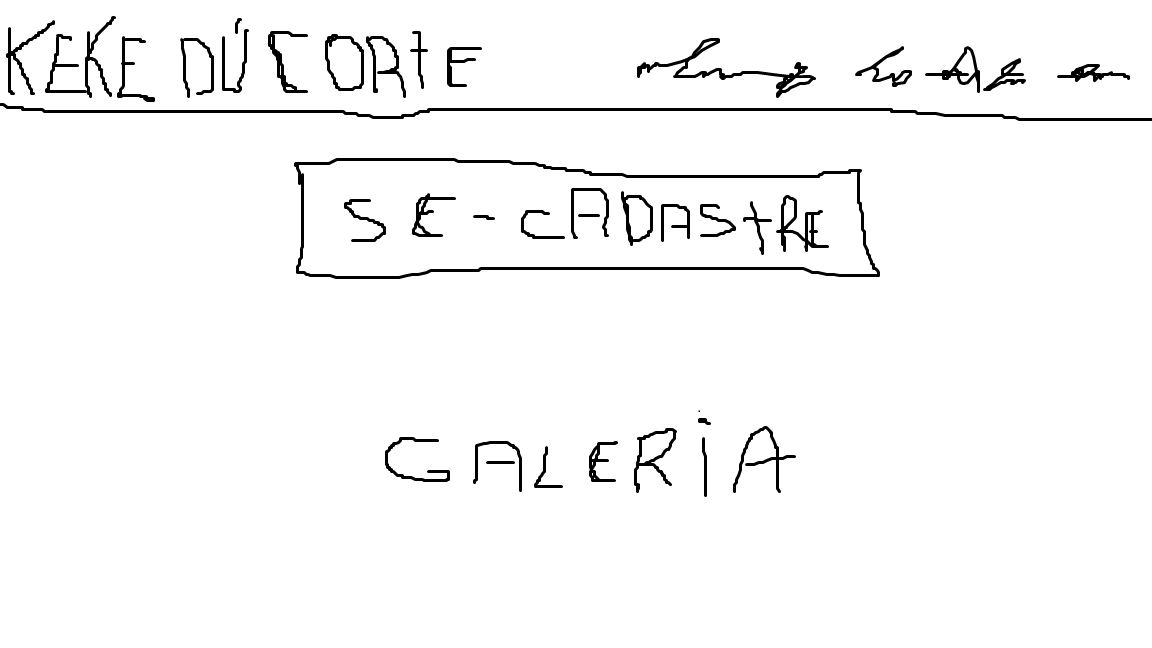 KEKE DÚ CORTE
SE-CADASTRE
GALERIA